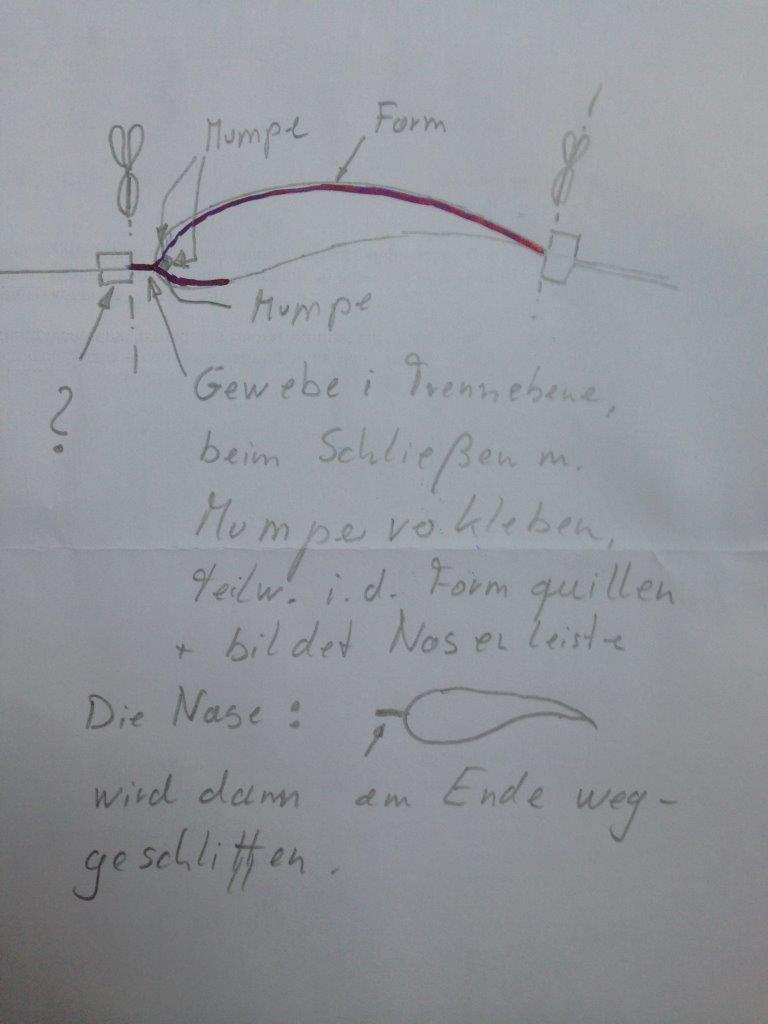 Mumpe
Form
Mumpe
?
Gewebe i Trennebene,
beim Schließen m.
Mumpe verkleben,
teilw. i.d. Form quillen
+ bildet Nasenleiste
Die Nase:
wird dann am Ende weg-
geschliffen.